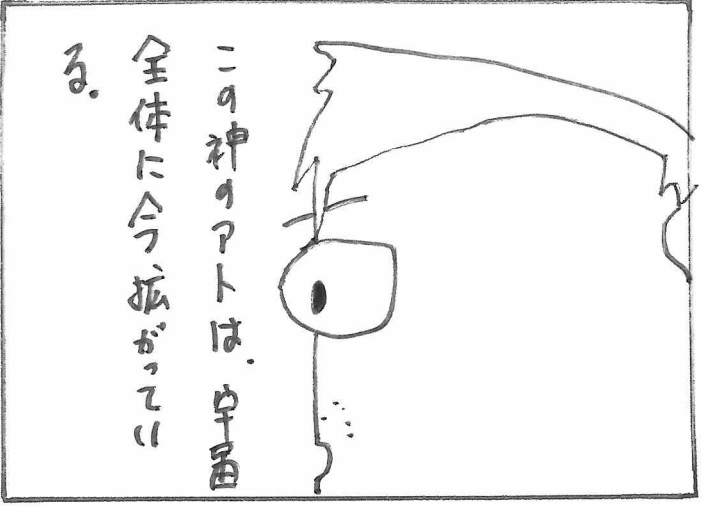 この神のアトは、宇宙
全体に今拡がってい
る。